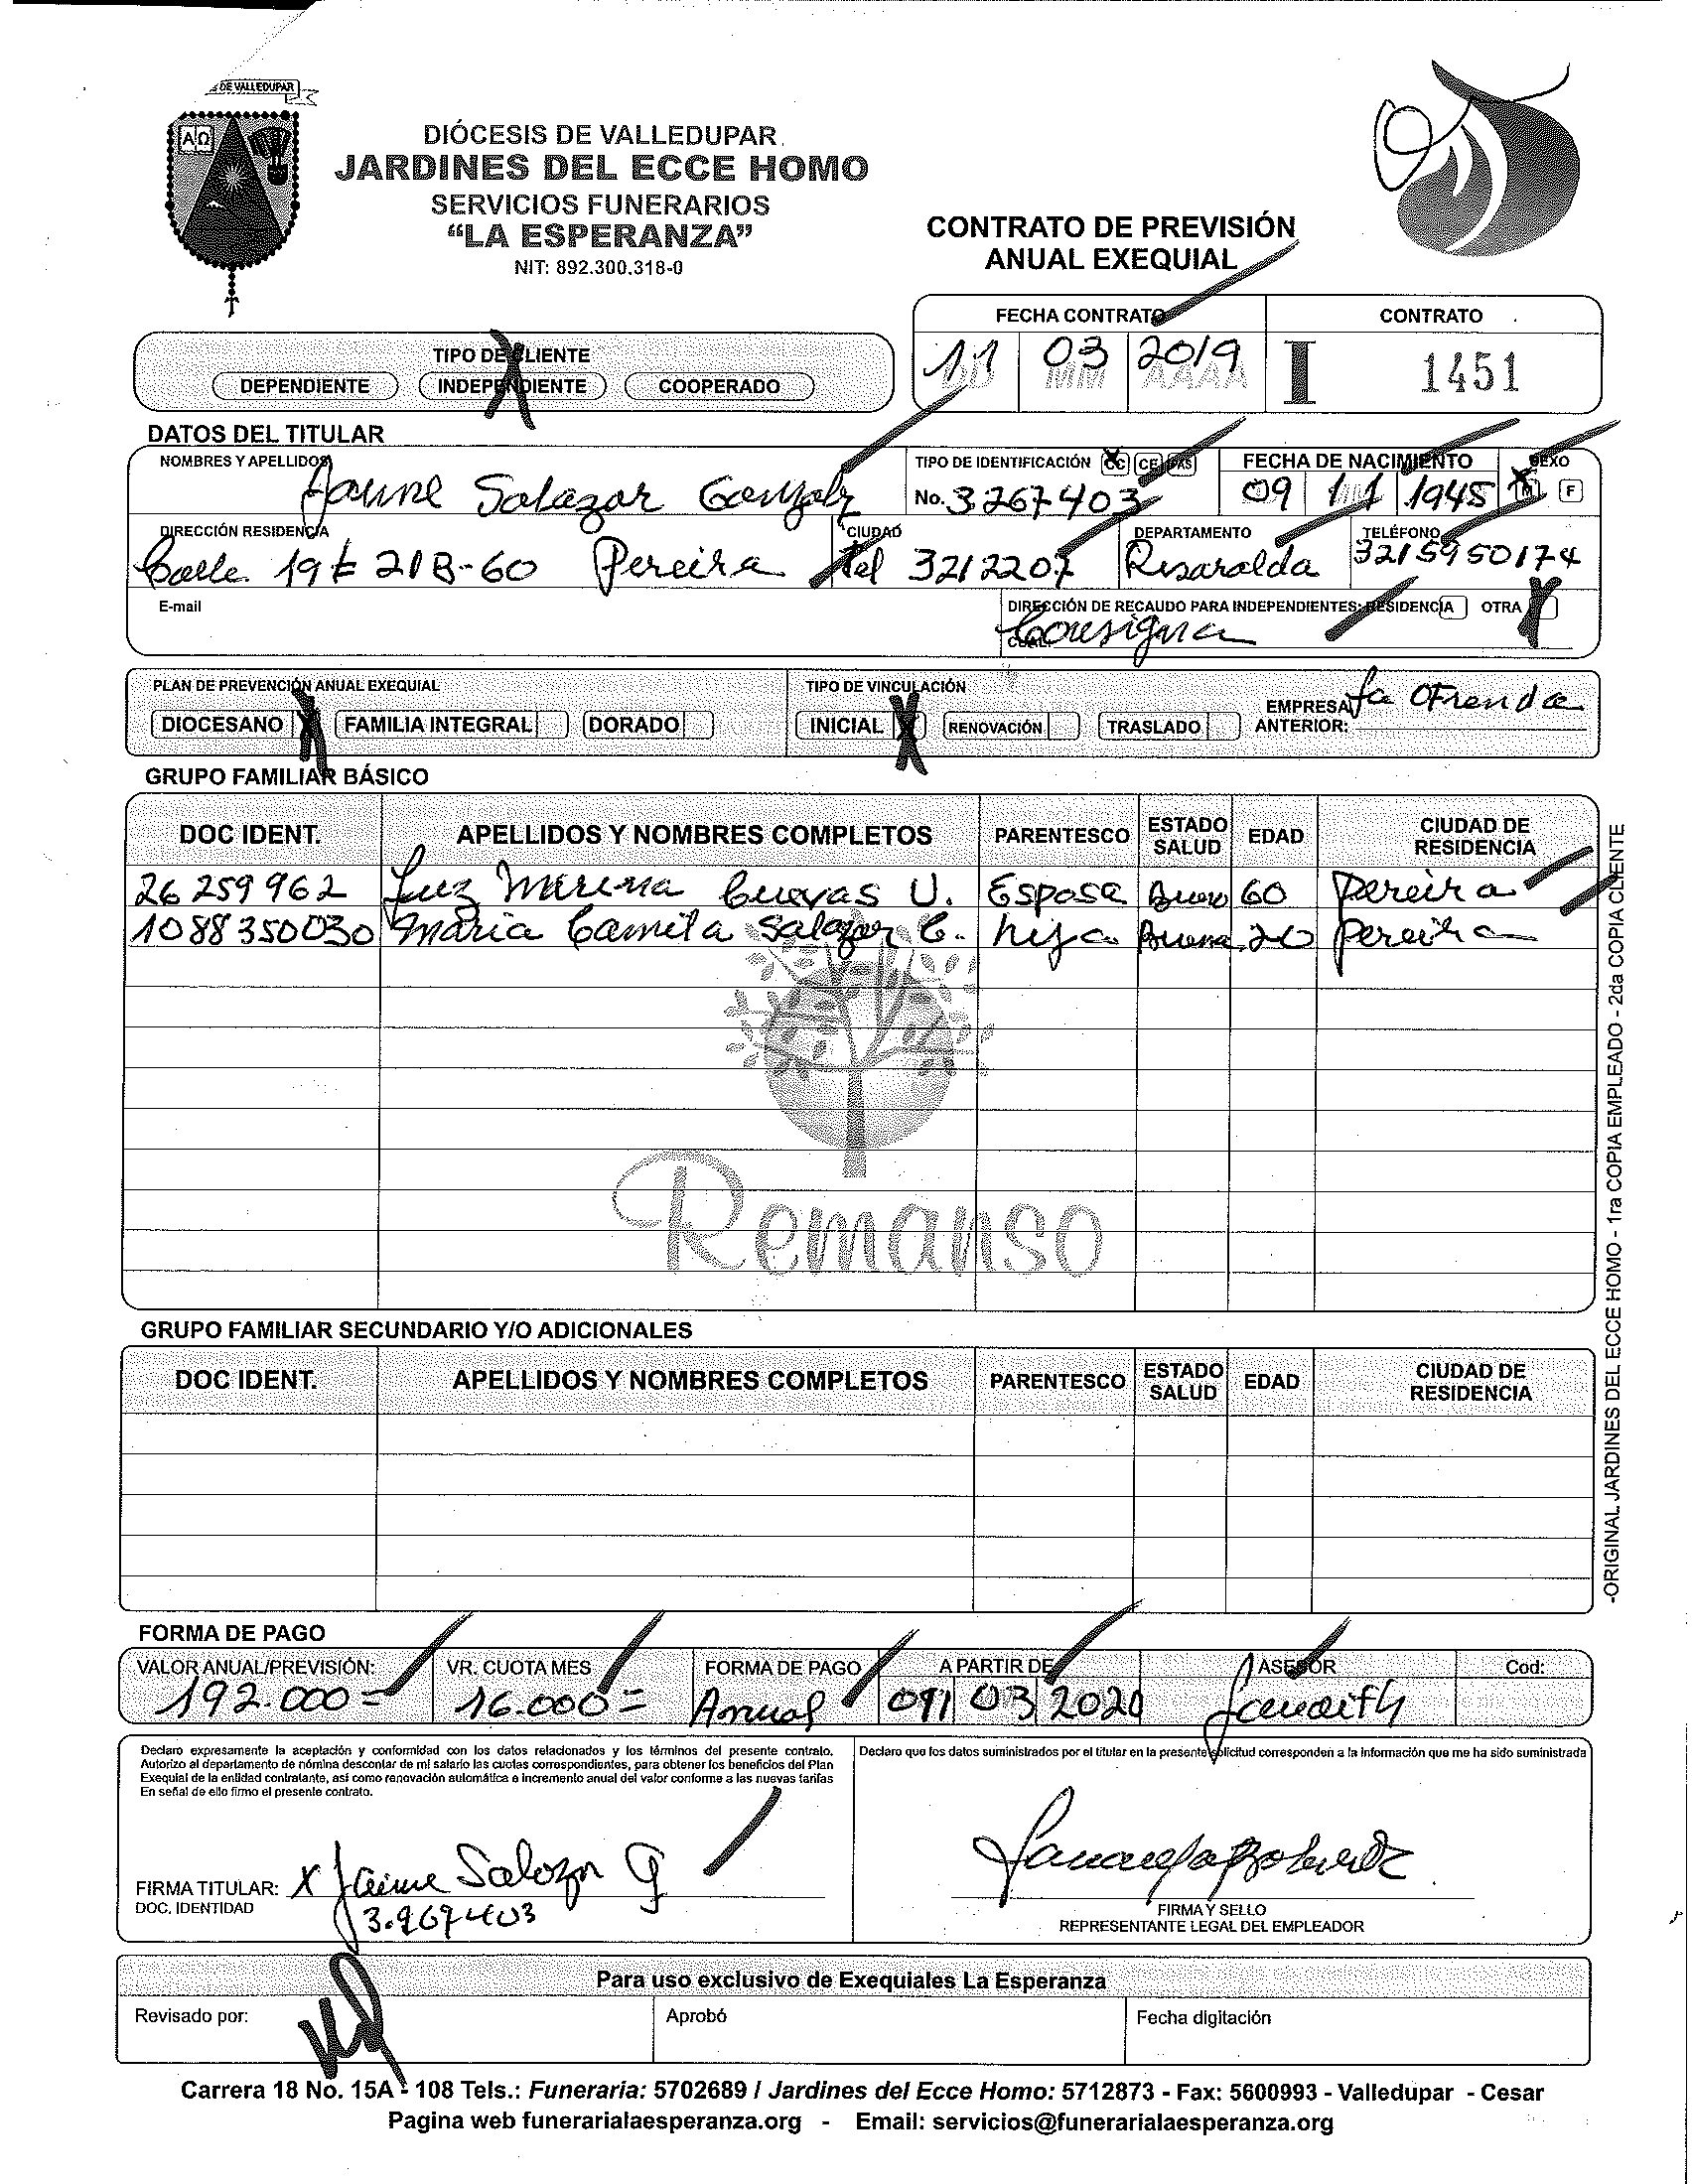 DE VALLEDUPAR
A Ω
DIÓCESIS DE VALLEDUPAR
JARDINES DEL ECCE HOMO
SERVICIOS FUNERARIOS
“LA ESPERANZA”
NIT: 892.300.318-0
CONTRATO DE PREVISIÓN
ANUAL EXEQUIAL
FECHA CONTRATO CONTRATO
11 03 2019 I 1451
DD MM AAAA
TIPO DE CLIENTE
DEPENDIENTE INDEPENDIENTE COOPERADO
DATOS DEL TITULAR
NOMBRES Y APELLIDOS TIPO DE IDENTIFICACIÓN CC CE PAS FECHA DE NACIMIENTO SEXO
Jaime Salazar No. 3267403 09 11 1945 M F
DIRECCIÓN RESIDENCIA CIUDAD DEPARTAMENTO TELÉFONO
Calle 19E 21B-60 Pereira Tel 3212207 Risaralda 3215950174
E-mail DIRECCIÓN DE RECAUDO PARA INDEPENDIENTES: RESIDENCIA OTRA
CUAL: Consigna
PLAN DE PREVENCIÓN ANUAL EXEQUIAL TIPO DE VINCULACIÓN
DIOCESANO X FAMILIA INTEGRAL DORADO INICIAL X RENOVACIÓN TRASLADO EMPRESA ANTERIOR: La Ofrenda
GRUPO FAMILIAR BÁSICO
DOC IDENT. APELLIDOS Y NOMBRES COMPLETOS PARENTESCO ESTADO SALUD EDAD CIUDAD DE RESIDENCIA
26259962 Luz Cuevas U. Esposa Bueno 60 Pereira
1088350030 Maria Camila Salazar C. hija Buena 20 Pereira
Remanso
GRUPO FAMILIAR SECUNDARIO Y/O ADICIONALES
DOC IDENT. APELLIDOS Y NOMBRES COMPLETOS PARENTESCO ESTADO SALUD EDAD CIUDAD DE RESIDENCIA
-ORIGINAL JARDINES DEL ECCE HOMO - 1ra COPIA EMPLEADO - 2da COPIA CLIENTE
FORMA DE PAGO
VALOR ANUAL/PREVISIÓN: VR. CUOTA MES FORMA DE PAGO A PARTIR DE ASESOR Cod:
192.000= 16.000= Anual 03 2020
Declaro expresamente la aceptación y conformidad con los datos relacionados y los términos del presente contrato.
Autorizo al departamento de nómina descontar de mi salario las cuotas correspondientes, para obtener los beneficios del Plan
Exequial de la entidad contratante, así como renovación automática e incremento anual del valor conforme a las nuevas tarifas
En señal de ello firmo el presente contrato.
Declaro que los datos suministrados por el titular en la presente solicitud corresponden a la información que me ha sido suministrada
FIRMA TITULAR: X Jaime Salazar G
DOC. IDENTIDAD 3.267403
FIRMA Y SELLO
REPRESENTANTE LEGAL DEL EMPLEADOR
Para uso exclusivo de Exequiales La Esperanza
Revisado por: Aprobó Fecha digitación
Carrera 18 No. 15A - 108 Tels.: Funeraria: 5702689 / Jardines del Ecce Homo: 5712873 - Fax: 5600993 - Valledupar - Cesar
Pagina web funerarialaesperanza.org - Email: servicios@funerarialaesperanza.org